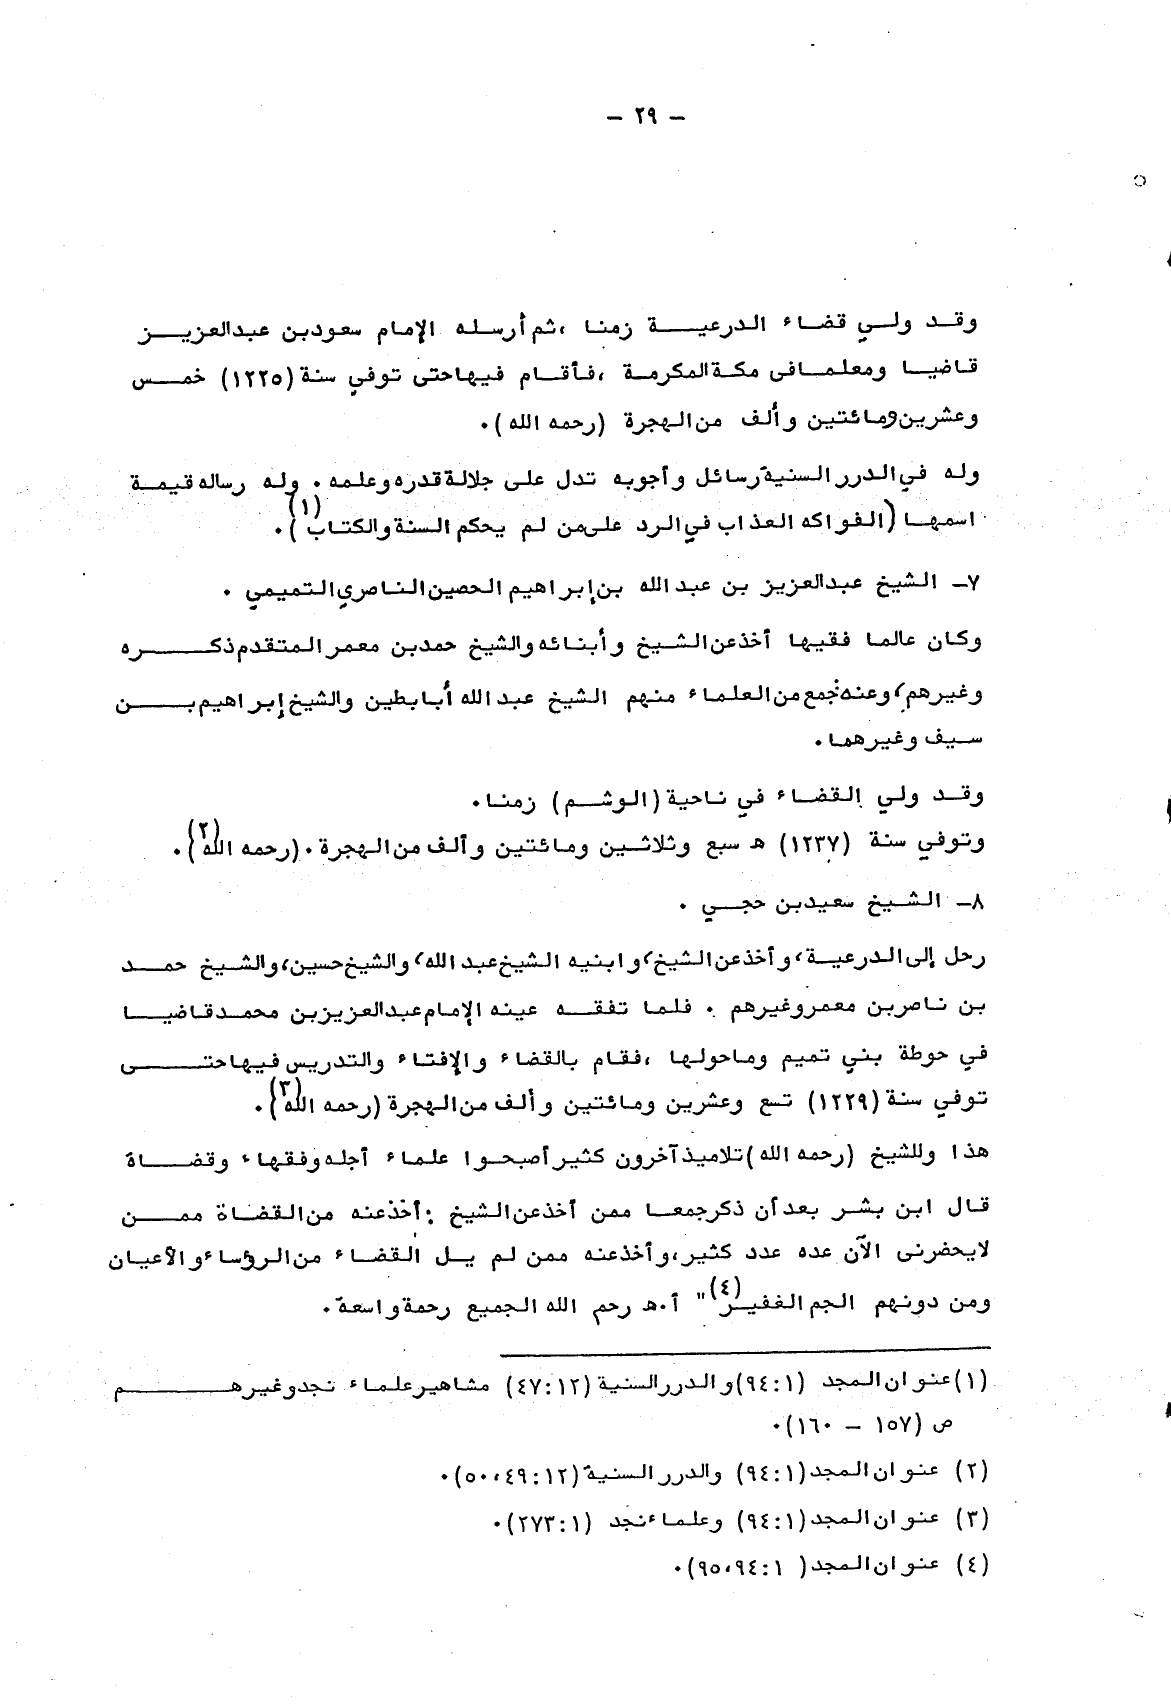 - ٢٩ -
وقد ولي قضاء الدرعية زمنا ، ثم أرسله الإمام سعود بن عبدالعزيز
قاضيا ومعلما في مكة المكرمة ، فأقام فيها حتى توفي سنة (١٢٢٥) خمس
وعشرين ومائتين وألف من الهجرة (رحمه الله) .
وله في الدرر السنية رسائل وأجوبه تدل على جلالة قدره وعلمه . وله رساله قيمة
اسمها (الفواكه العذاب في الرد على من لم يحكم السنة والكتاب)(١) .
٧- الشيخ عبدالعزيز بن عبدالله بن إبراهيم الحصين الناصري التميمي .
وكان عالما فقيها أخذ عن الشيخ وأبنائه والشيخ حمد بن معمر المتقدم ذكره
وغيرهم، وعنه جمع من العلماء منهم الشيخ عبدالله أبا بطين والشيخ إبراهيم بن
سيف وغيرهما .
وقد ولي القضاء في ناحية (الوشم) زمنا .
وتوفي سنة (١٢٣٧) هـ سبع وثلاثين ومائتين وألف من الهجرة . (رحمه الله)(٢) .
٨- الشيخ سعيد بن حجي .
رحل إلى الدرعية، وأخذ عن الشيخ، وابنيه الشيخ عبدالله، والشيخ حسين، والشيخ حمد
بن ناصر بن معمر وغيرهم . فلما تفقه عينه الإمام عبدالعزيز بن محمد قاضيا
في حوطة بني تميم وماحولها ، فقام بالقضاء والإفتاء والتدريس فيها حتى
توفي سنة (١٢٢٩) تسع وعشرين ومائتين وألف من الهجرة (رحمه الله)(٣) .
هذا وللشيخ (رحمه الله) تلاميذ آخرون كثير أصبحوا علماء أجله وفقهاء وقضاة
قال ابن بشر بعد أن ذكر جمعا ممن أخذ عن الشيخ : أخذ عنه من القضاة ممن
لايحضرني الآن عده عدد كثير، وأخذ عنه ممن لم يل القضاء من الرؤساء والأعيان
ومن دونهم الجم الغفير(٤)" أ.هـ رحم الله الجميع رحمة واسعة .
(١) عنوان المجد (٩٤:١) والدرر السنية (٤٧:١٢) مشاهير علماء نجد وغيرهم
ص (١٥٧ - ١٦٠) .
(٢) عنوان المجد (٩٤:١) والدرر السنية (٥٠،٤٩:١٢) .
(٣) عنوان المجد (٩٤:١) وعلماء نجد (٢٧٣:١) .
(٤) عنوان المجد ( ٩٥،٩٤:١) .